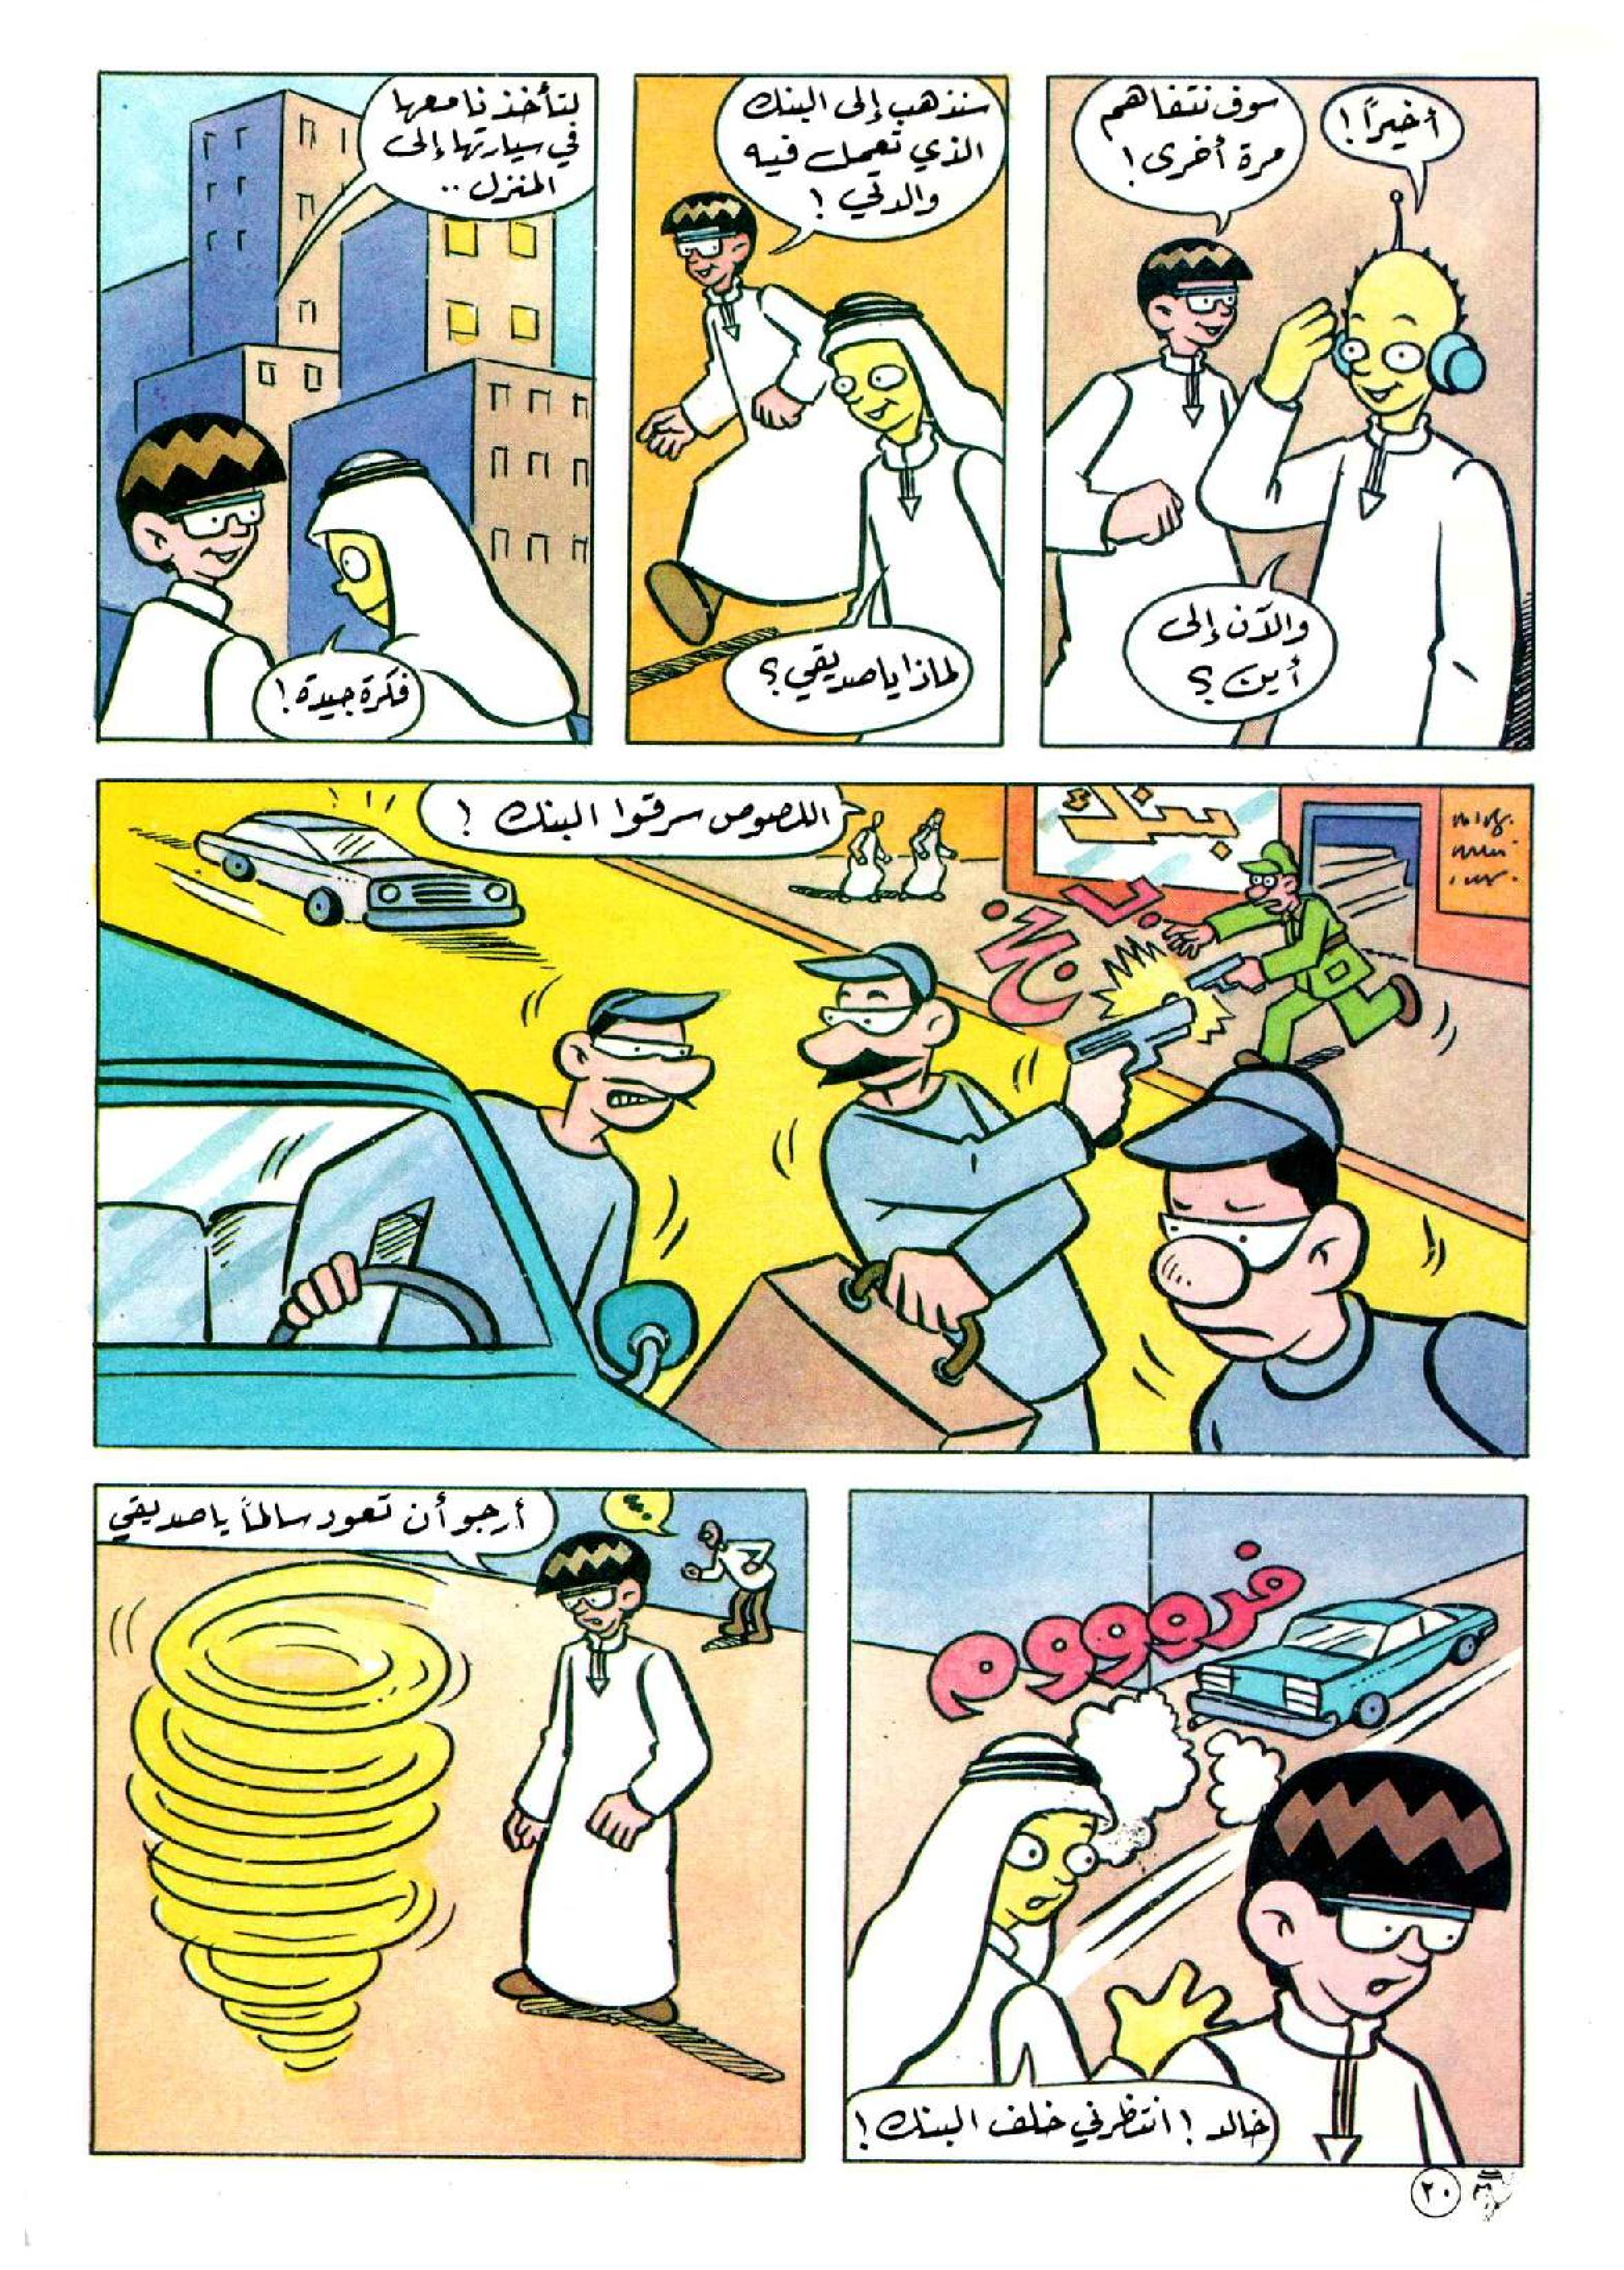 أخيراً!
سوف نتفاهم
مرة أخرى!
والآن إلى
أين؟
سنذهب إلى البنك
الذي تعمل فيه
والدتي!
لماذا يا صديقي؟
لتأخذنا معها
في سيارتها إلى
المنزل..
فكرة جيدة!
بنك
اللصوص سرقوا البنك!
فرووووم
خالد! انتظرني خلف البنك!
؟؟
أرجو أن تعود سالماً يا صديقي
٢٠